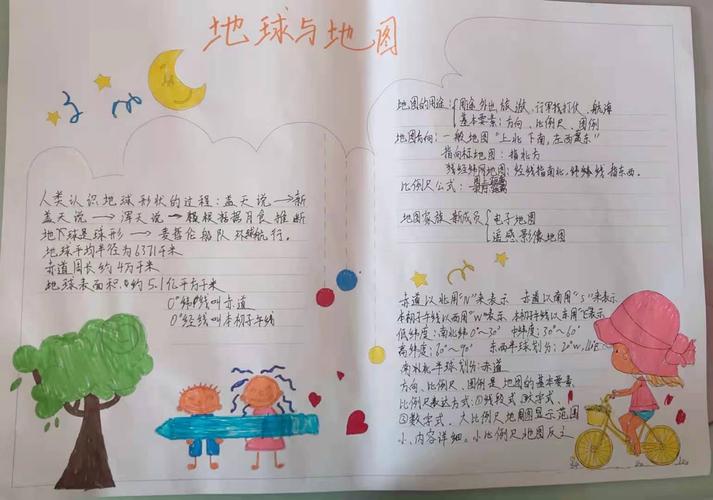 地球与地图
人类认识地球形状的过程：盖天说→新
盖天说→浑天说→根据月食推断
地球是球形→麦哲伦船队环球航行。
地球平均半径为6371千米
赤道周长约4万千米
地球表面积约5.1亿平方千米
0°纬线叫赤道
0°经线叫本初子午线
地图的用途：用途外出旅游、行军打仗、航海
基本要素：方向、比例尺、图例
地图方向：一般地图"上北下南，左西右东"
指向标地图：指北方
经纬网地图：经线指南北，纬线指东西。
比例尺公式：
地图家族新成员 电子地图
遥感影像地图
赤道以北用"N"来表示 赤道以南用"S"来表示
本初子午线以西用"W"表示 本初子午线以东用"E"表示
低纬度：南北纬0°~30° 中纬度：30°~60°
高纬度：60°~90° 东西半球划分：20°W,160°E
南北半球划分：赤道
方向、比例尺、图例是地图的基本要素
比例尺表达方式：①线段式②文字式
③数字式。大比例尺地图显示范围
小、内容详细。小比例尺地图反之